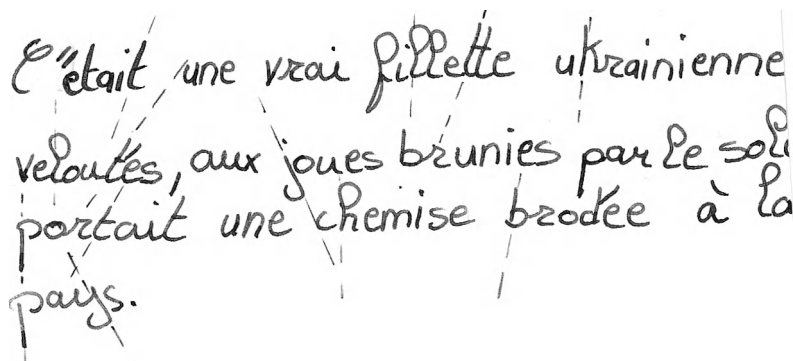 C'était une vrai fillette ukrainienne
veloutés, aux joues brunies par le sol
portait une chemise brodée à la
pays.